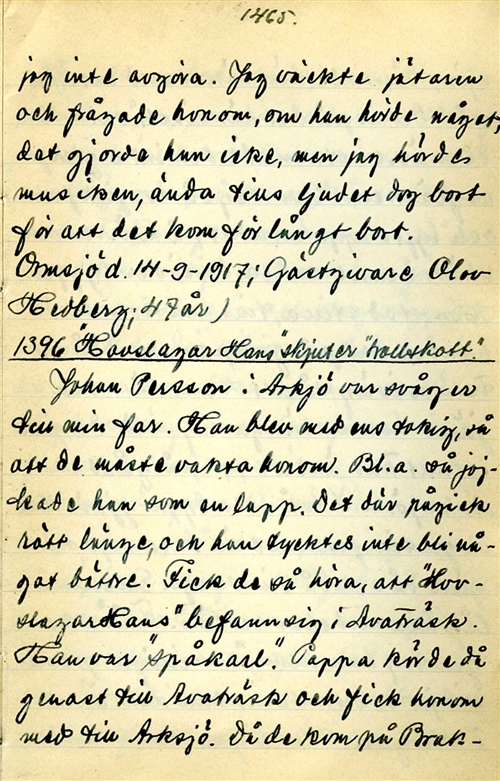 1465.
jag inte avgöra. Jag väckte jätaren
och frågade honom, om han hörde något,
det gjorde han icke, men jag hörde
musiken, ända tills ljudet dog bort
för att det kom för långt bort.
Ormsjö d. 14-9-1917; Gästgivare Olov
Hedberg; 47 år)
1396 "Hovslagar Hans" skjuter "trollskott".
Johan Persson i Arksjö var svåger
till min far. Han blev med ens tokig, så
att de måste vakta honom. Bl.a. så joj-
kade han som en lapp. Det där pågick
rätt länge, och han tycktes inte bli nå-
got bättre. Fick de så höra, att "Hov-
slagar Hans" befann sig i Avaträsk.
Han var "spåkarl". Pappa körde då
genast till Avaträsk och fick honom
med till Arksjö. Då de kom på Brak-